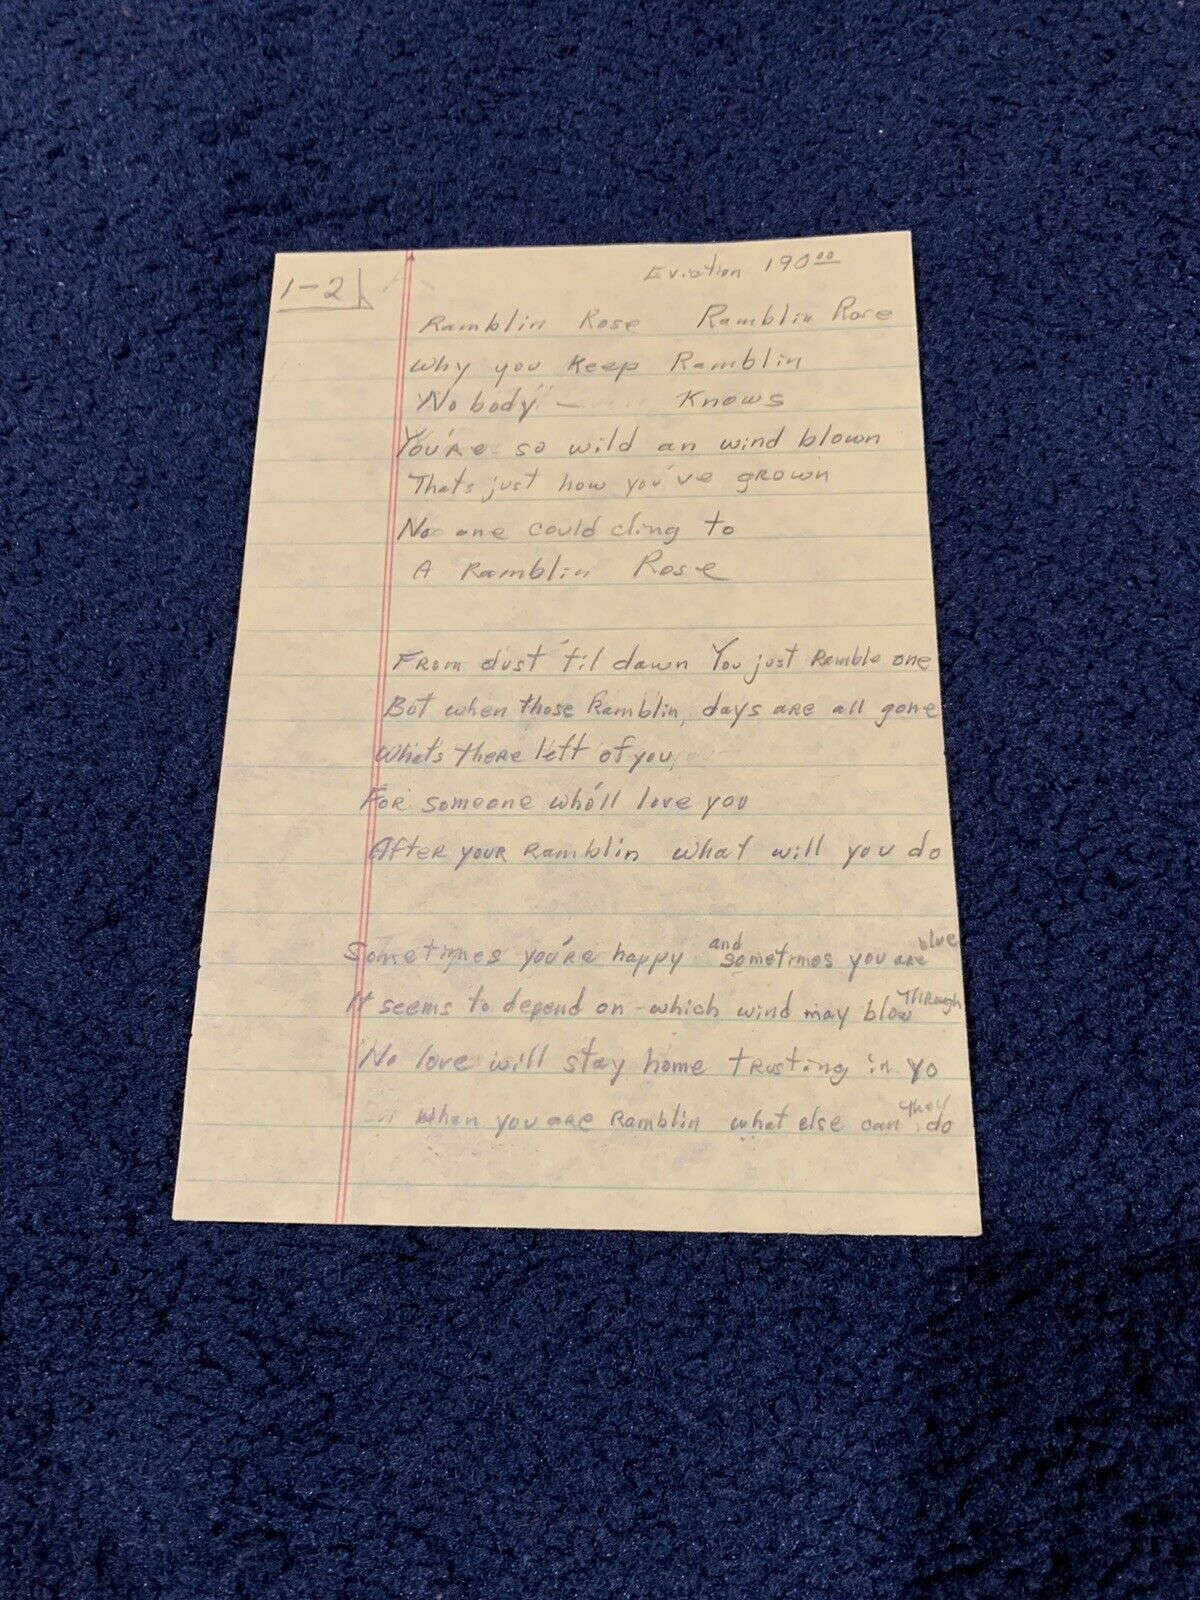 Eviction 190.00
1-2 b
Ramblin Rose Ramblin Rose
Why you Keep Ramblin
No body — Knows
You're so wild an wind blown
Thats just how you've grown
No one could cling to
A Ramblin Rose
From dust 'til dawn You just Ramble one
But when those Ramblin, days are all gone
Whats there left of you
For someone who'll love you
After your Ramblin what will you do
Sometimes you're happy and sometimes you are blue
It seems to depend on - which wind may blow Through
No love will stay home trusting in yo
When you are Ramblin what else can they do